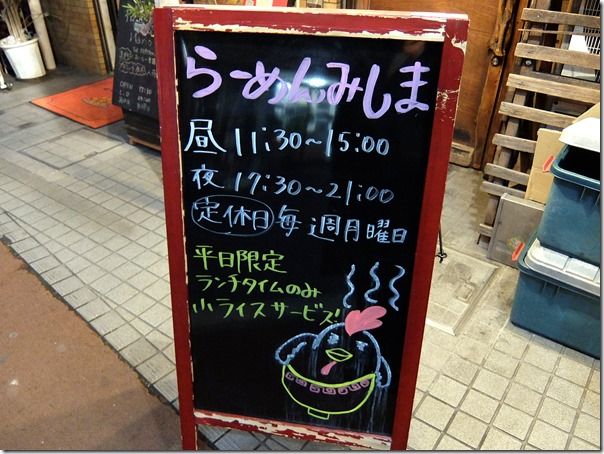 らーめんみしま
昼 11:30～15:00
夜 17:30～21:00
定休日 毎週月曜日
平日限定
ランチタイムのみ
小ライスサービス!